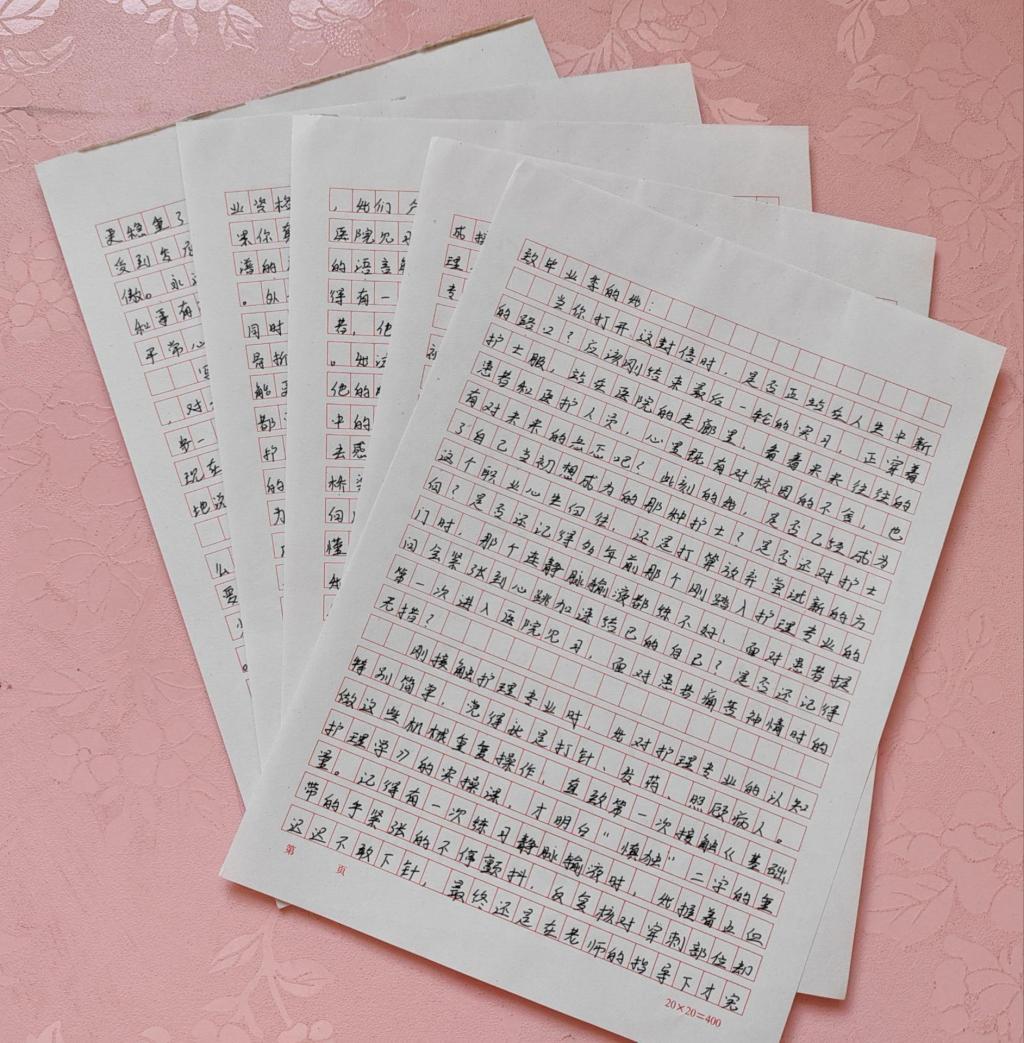 致毕业季的她：
当你打开这封信时，是否正站在人生中新
的路口？应该刚结束最后一轮的实习，正穿着
护士服，站在医院的走廊里，看着来来往往的
患者和医护人员，心里既有对校园的不舍，也
有对未来的忐忑吧？此刻的她，是否已经成为
了自己当初想成为的那种护士？是否还对护士
这个职业心生向往，还是打算放弃进新的方
向？是否还记得多年前那个刚踏入护理专业的
门时，那个在静脉输液都练不好、面对患者提
问会紧张到心跳加速结巴的自己？是否还记得
第一次进入医院见习，面对患者痛苦神情时的
无措？
刚接触护理专业时，她对护理专业的认知
特别简单，觉得就是打针、发药、照顾病人。
做这些机械重复操作，直致第一次接触《基础
护理学》的实操课，才明白“慎独”二字的重
量。记得有一次练习静脉输液时，她握着止血
带的手紧张的不停颤抖，反复核对穿刺部位却
迟迟不敢下针，最终还是在老师的指导下才完
第 页
20×20=400
成
理
专
，她们
医院见习
的语言
得有一
者，他
。她
他的
中的
去感
桥
向
懂
她
业资格
果你
谱的
。从
同时
导
能
都
护
的
为
更稳重了
受到
傲。永远
和等有
平常心
，对
步一
现在
地说
么
要